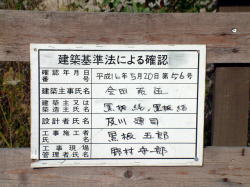 建築基準法による確認
確認年月日番号 平成16年5月20日第56号
建築主事氏名 会田
建築主又は築造主氏名 黒板 純、黒板
設計者氏名 及川
工事施工者氏名 黒板 五郎
工事現場管理者氏名 野村